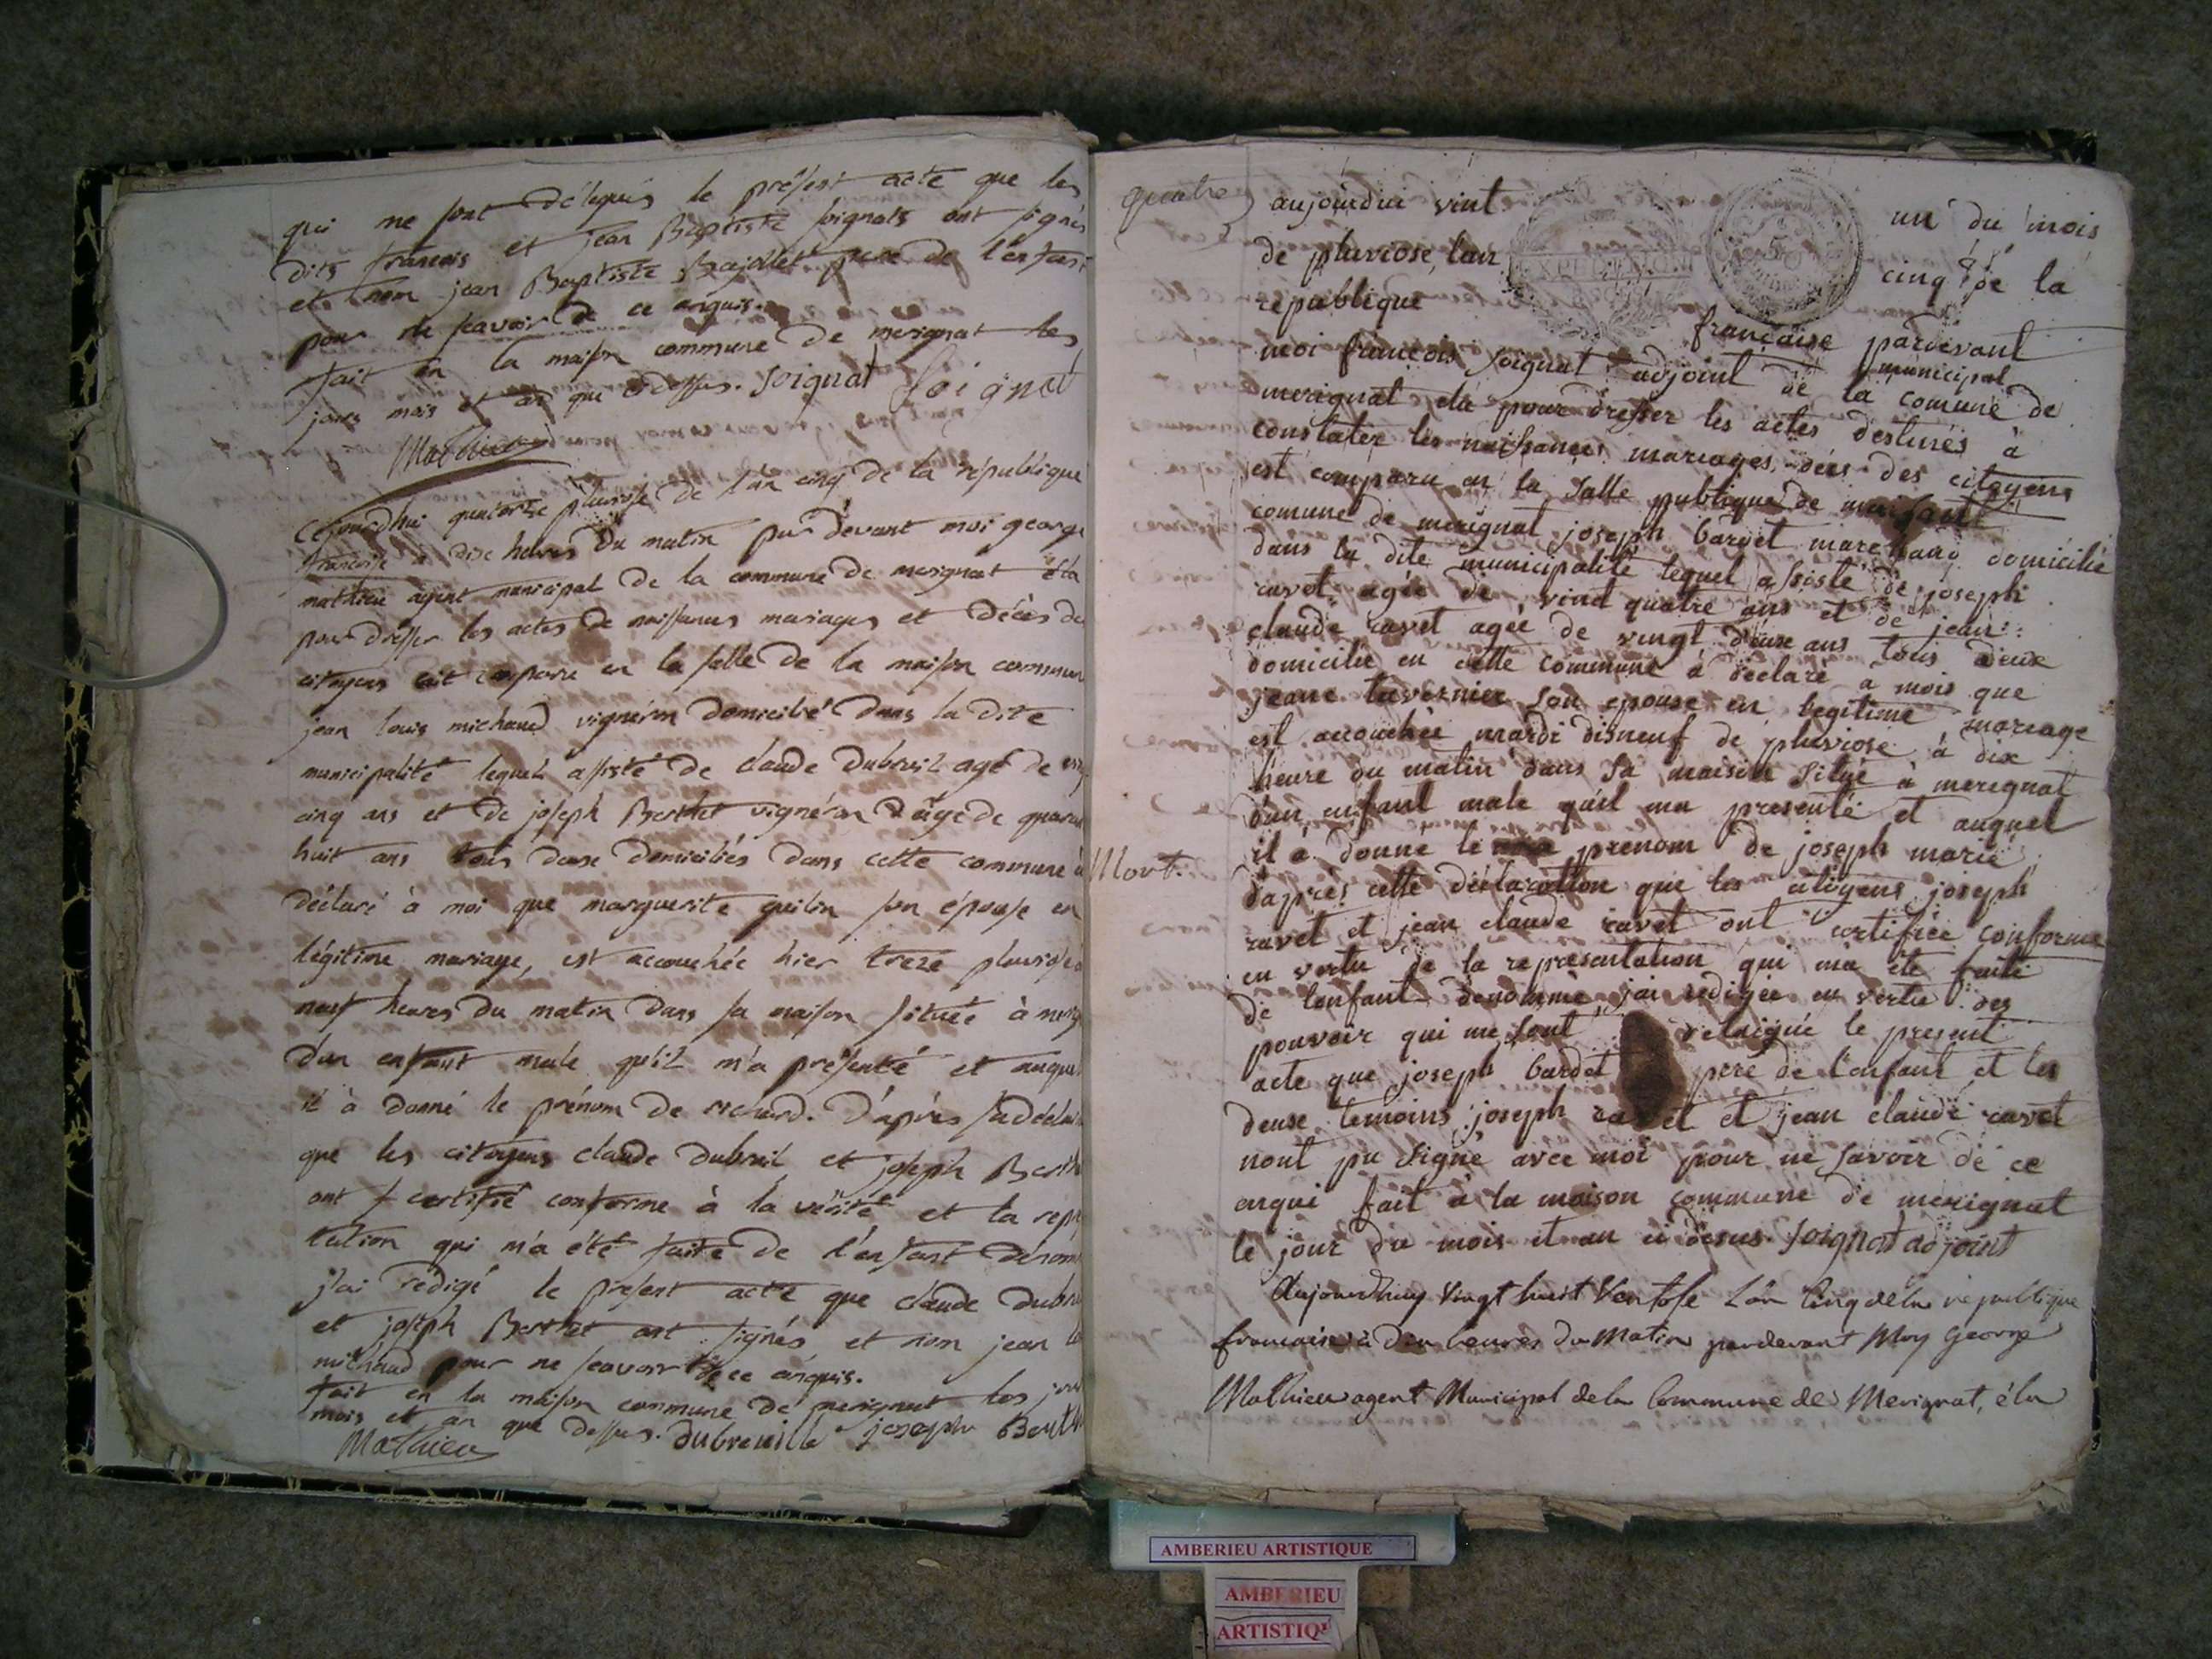 qui me sont délégués le présent acte que les
dits francois et jean Baptiste soignats ont signés
et non jean Baptiste Bajollet pere de l'enfant
pour ne scavoir de ce enquis.
fait en la maison commune de merignat les
jours mois et an que dessus. Soignat Soignat
Mathieu
Cejourdhui quatorze pluviose de l'an cinq de la république
francoise à dix heures du matin par devant moi george
mathieu agent municipal de la commune de merignat élu
pour dresser les actes de naissances mariages et décès des
citoyens est comparu en la salle de la maison commune
jean louis michaud vigneron domicilié dans la dite
municipalité lequel assisté de claude dubreuil agé de
cinq ans et de joseph Berthet vigneron agé de quarante
huit ans tous deux domiciliés dans cette commune à
déclaré à moi que marguerite guilin son épouse en
légitime mariage, est accouchée hier treze pluviose à
neuf heures du matin dans sa maison située à
d'un enfant male qu'il m'a présenté et auquel
il à donné le prénom de richard. D'après sa
que les citoyens claude dubreuil et joseph Berth
ont certifié conforme à la vérité et la repré
tation qui m'a été faite de l'enfant dénom
j'ai rédigé le présent acte que claude dubreu
et joseph Berthet ont signés et non jean
michaud pour ne scavoir de ce enquis.
fait en la maison commune de merignat les jour
mois et an que dessus. dubreuille joseph Berth
Mathieu
quatre
aujourdui vint un du mois
de pluviose lan cinq de la
republique française pardevant
moi francois soignat adjoint municipal de la comune de
merignat élu pour dresser les actes destinés à
constater les naissances mariages déces des citoyens
est comparu en la salle publique de
comune de merignat joseph bardet domicilié
dans la dite municipalité lequel assisté de joseph
ravet agée de vint quatre ans et de jean
claude ravet agée de vingt deuse ans tous deuse
domicilié en cette commune a declaré à mois que
jeane tavernier son epouse en legitime mariage
est accouchée mardi disneuf de pluviose à dix
heure du matin dans sa maison situé à merignat
dun enfant male quil ma presenté et auquel
il a donné le prenom de joseph marie
Mort.
daprès cette déclaration que les citoyens joseph
ravet et jean claude ravet ont certifiée conforme
en vertu de la representation qui ma été faite
de lenfant denommé jai redigée en vertu des
pouvoir qui me sont le present
acte que joseph bardet pere de l'enfant et les
deuse temoins joseph ravet et jean claude ravet
nont pu signé avec moi pour ne savoir de ce
enqui fait a la maison commune de merignat
le jour du mois et an ci desus Soignat adjoint
Aujourdhuy Vingt huit Ventose L'an Cinq de la republique
francaise à dix heures du Matin pardevant Moy George
Mathieu agent Municipal de la Commune de Merignat, élu
AMBERIEU ARTISTIQUE
AMBERIEU
ARTISTIQ